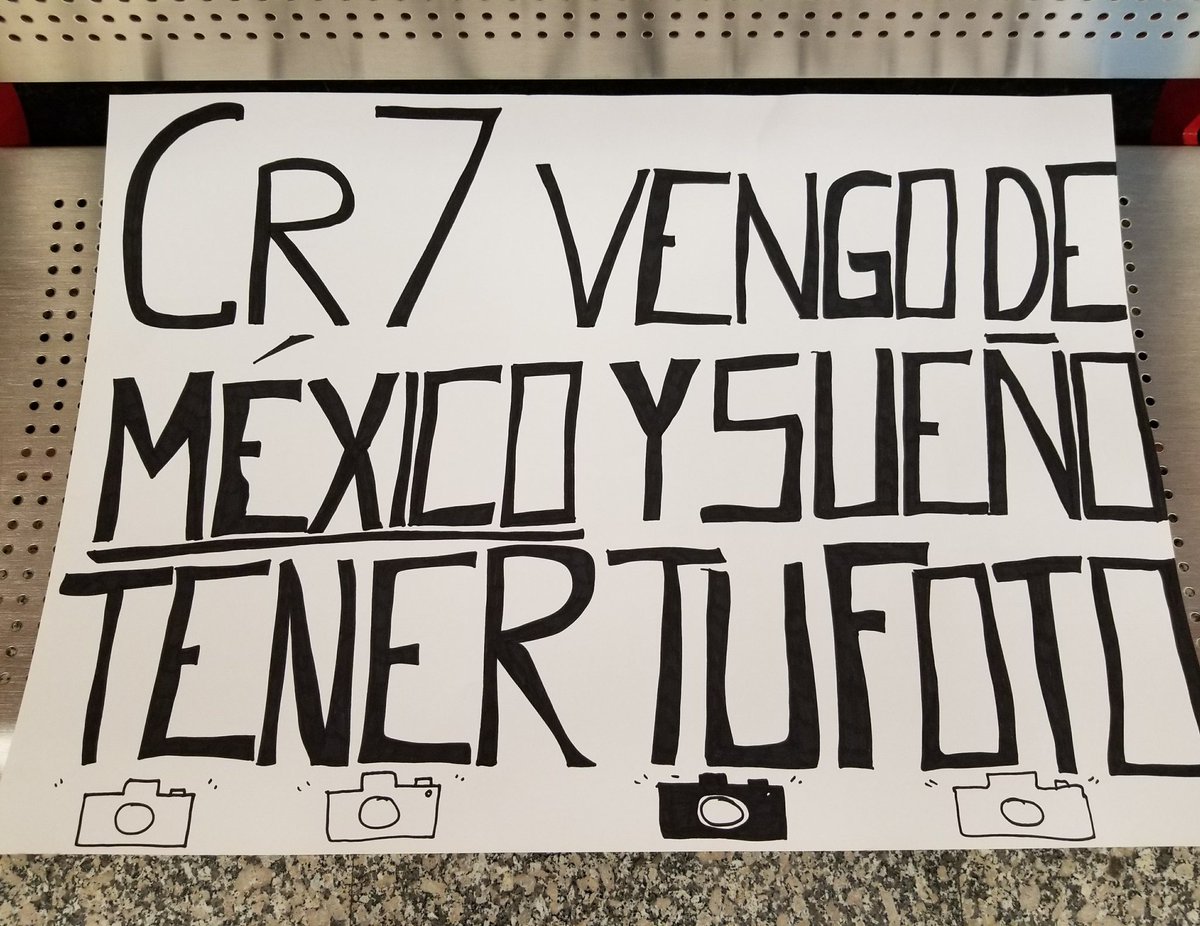 CR7 VENGO DE
MÉXICO Y SUEÑO
TENER TU FOTO